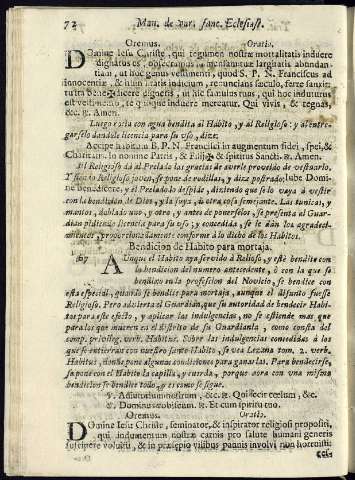 72 Man. de var. sanc. Eclesiast.
Oremus. Oratio.
DOmine Iesu Christe, qui tegumen nostræ mortalitatis induere
dignatus es, obsecramus immensamtuæ largitatis abundan-
tiam, ut hoc genus vestimenti, quod S. P. N. Franciscus ad
innocentiæ, & humilitatis indicium, renuncians sæculo, ferre sanxit:
ita benedicere digneris, ut hic famulus tuus, qui hoc indutus
est vestimento, te quoque induere mereatur. Qui vivis, & regnas,
&c. ℞. Amen.
Luego rocia con agua bendita al Habito, y al Religioso: y al entre-
garselo dandole licencia para su uso, dize:
Accipe habitum B. P. N. Francisci in augmentum fidei, spei, &
Charitatis. In nomine Patris, & Filij, & Spiritus Sancti. ℞. Amen.
El Religioso dà al Prelado las gracias de averle proveido de vestuario.
Y siendo Religioso joven, se pone de rodillas, y diza postrado: Iube Domi-
ne benedicere, y el Prelado lo despide, diziendo que se lo vaya à vestir
con la bendicion de Dios, y la suya, ù otra cosa semejante. Las tunicas, y
mantos, doblado uno, y otro, y antes de ponerselos, se presenta al Guar-
dian pidiendo licencia para su uso; y concedida, se le dàn los agradeci-
mientos, proporcionadamente conforme à lo dicho de los Habitos.
Bendicion de Habito para mortaja.
167 AUnque el Habito aya servido à Relioso, y estè bendito con
la bendicion del numero antecedente, ò con la que se
bendixo en la profession del Novicio, se bendice con
esta especial, quando se bendice para mortaja, aunque el difunto fuesse
Religioso. Pero advierta el Guardian, que su autoridad de bendecir Habi-
tos para este efecto, y aplicar las indulgencias, no se estiende mas que
para los que mueren en el distrito de su Guardiania, como consta del
comp. privileg. verb. Habitus. Sobre las indulgencias concedidas à los
que se entierran con nuestro santo Habito, se vea Lezana tom. 2. verb.
Habitus, donde pone algunas condiciones para ganarlas. Para bendecirse,
se pone con el Habito la capilla, y cuerda, porque aora con una misma
bendicion se bendice todo, y es como se sigue.
℣. Adiutorium nostrum, &c. ℞. Qui fecit cœlum, &c.
℣. Dominus vobiscum. ℞. Et cum spiritu tuo.
Oremus. Oratio.
DOmine Iesu Christe, seminator, & inspirator religiosi propositi,
qui indumentum nostræ carnis pro salute humani generis
suscipere voluisti, & in præsepio vilibus pannis involvi non horruisti: